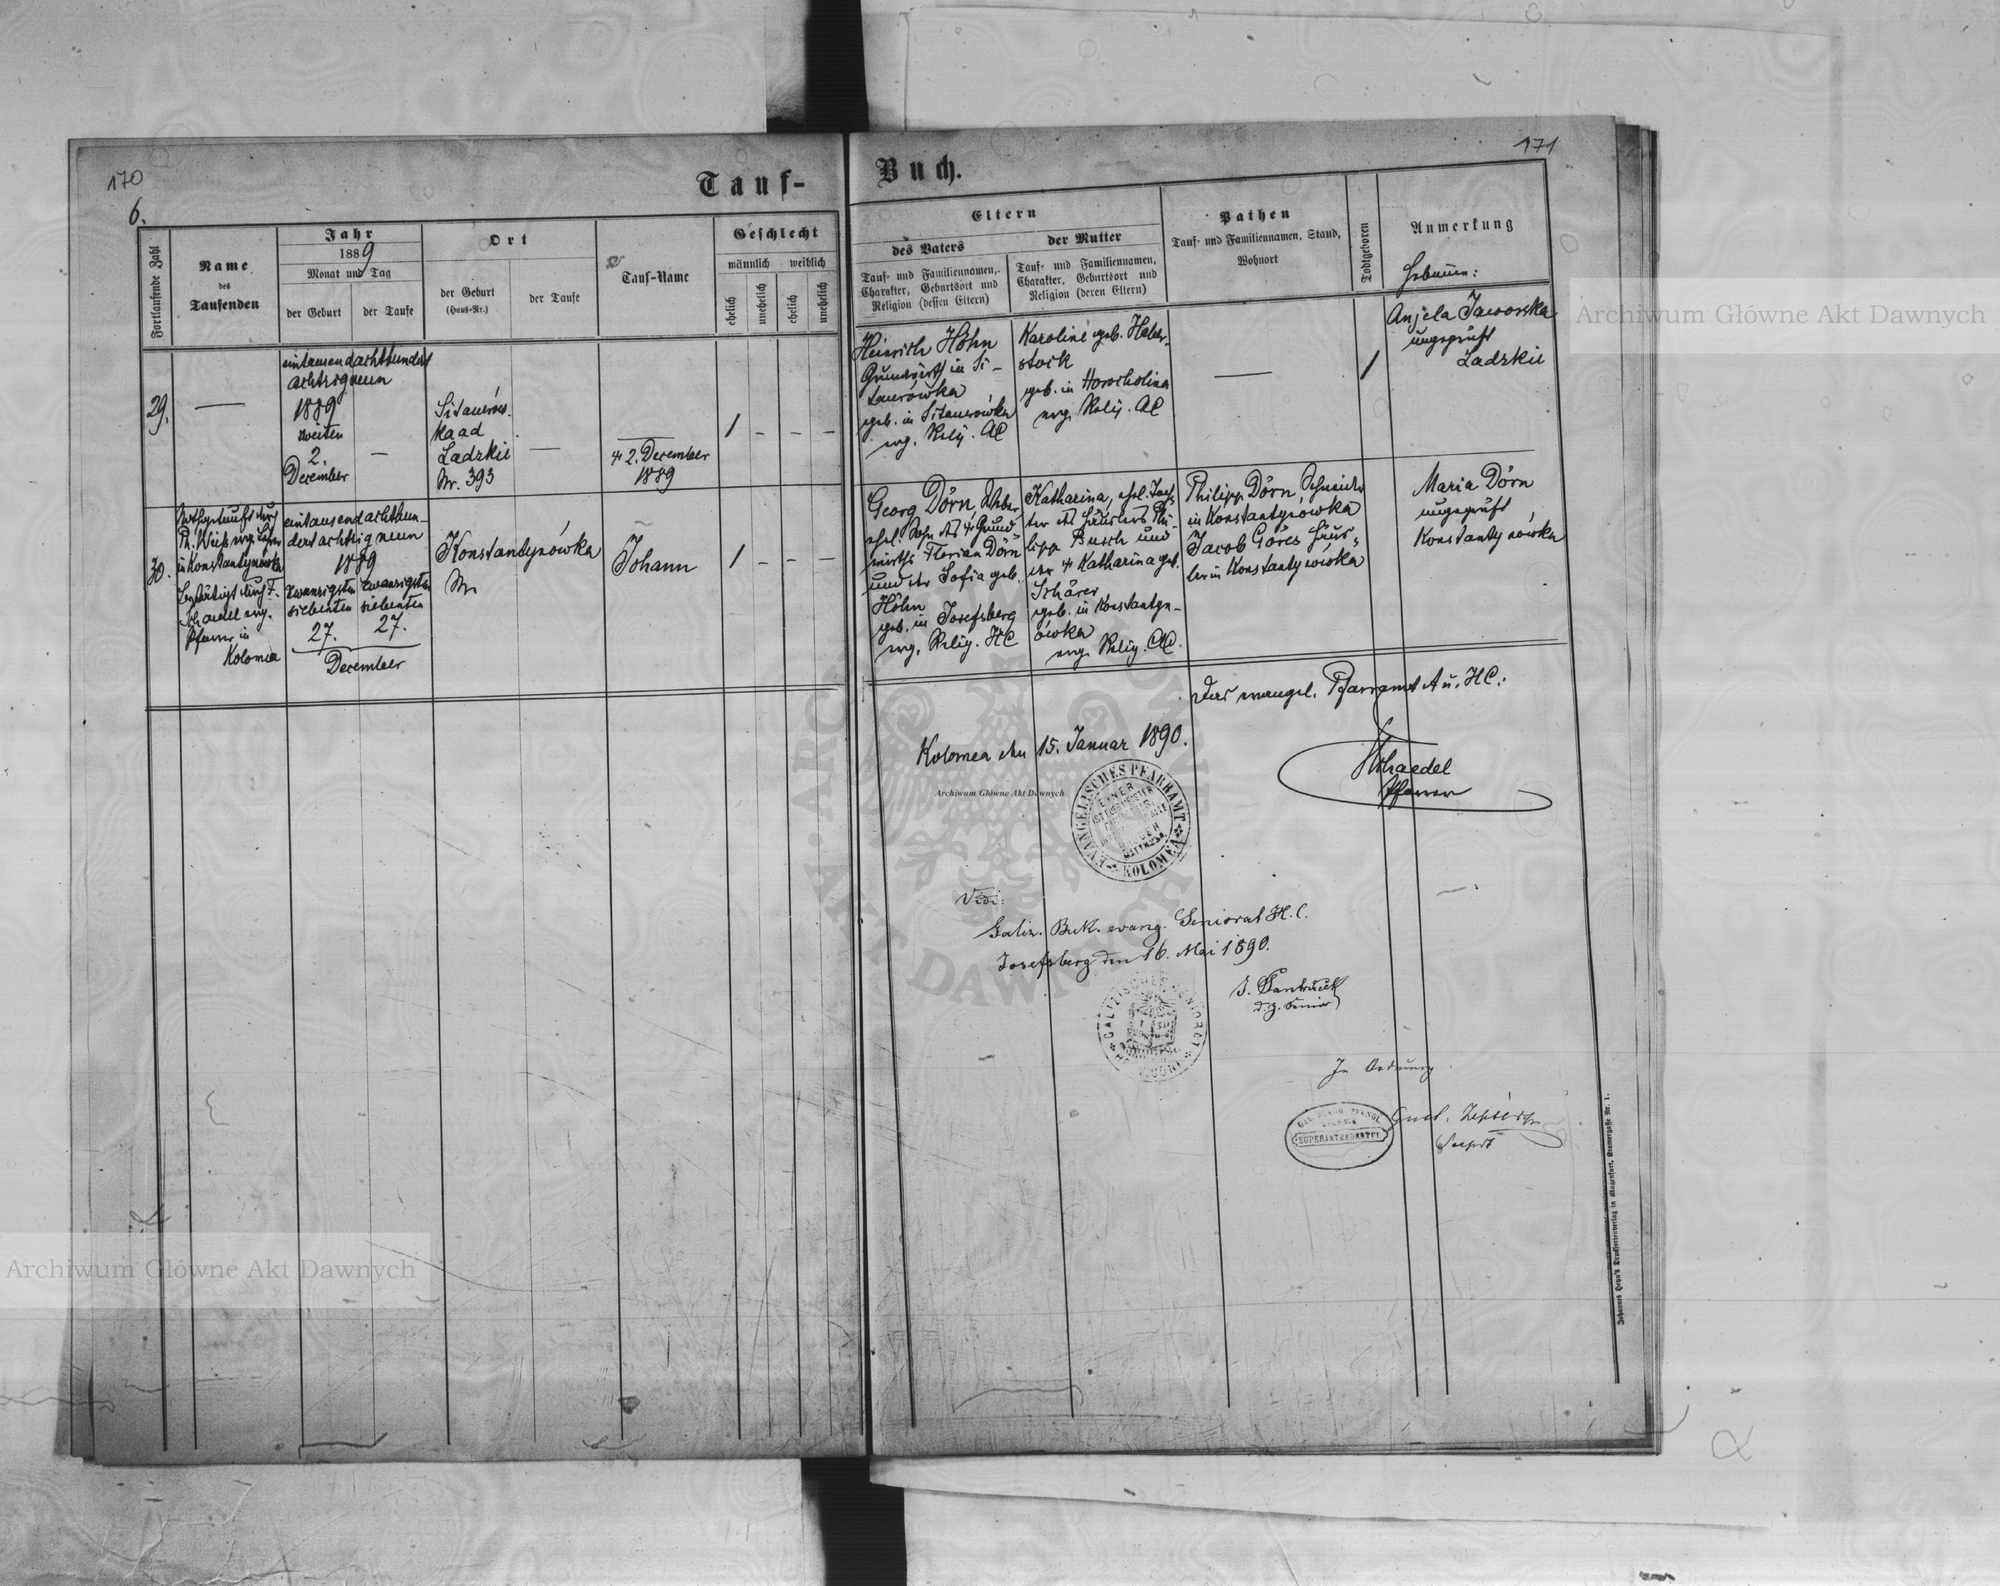 170
171
6.
Tauf-
Buch.
Fortlaufende Zahl
Name
des
Taufenden
Jahr
1889
Monat und Tag
der Geburt
der Taufe
Ort
der Geburt
(Haus-Nr.)
der Taufe
Tauf-Name
Geschlecht
männlich
weiblich
ehelich
unehelich
ehelich
unehelich
Eltern
des Vaters
Tauf- und Familiennamen,
Charakter, Geburtsort und
Religion (dessen Eltern)
der Mutter
Tauf- und Familiennamen,
Charakter, Geburtsort und
Religion (deren Eltern)
Pathen
Tauf- und Familiennamen, Stand,
Wohnort
Todtgeboren
Anmerkung
Hebamme:
29.
—
eintausendachthundert
achtzigneun
1889
zweiten
2.
December
—
Sitauerów-
ka ad
Ladzkie
Nr. 393
—
† 2. December
1889
/
-
-
-
Heinrich Höhn
Grundwirth in Si-
tauerówka
geb. in Sitauerówka
evg. Relig. AC
Karoline geb. Haber-
stock
geb. in Horocholina
evg. Relig. AC
—
/
Anjela Jaworska
ungeprüft
Ladzkie
30.
Nothgetauft durch
Ph. Weiß evg. Lehrer
in Konstantynówka
Bestätigt durch F.
Schaedel evg.
Pfarrer in
Kolomea
eintausendachthun-
dertachtzigneun
1889
zwanzigsten
siebenten
27.
zwanzigsten
siebenten
27.
December
Konstantynówka
Nr.
Johann
/
-
-
-
Georg Dörn, Weber
ehel. Sohn des † Grund-
wirths Florian Dörn
und der Sofia geb.
Höhn
geb. in Josefsberg
evg. Relig. HC
Katharina, ehel. Toch-
ter des Häuslers Phi-
lipp Busch und
der † Katharina geb.
Schärer
geb. in Konstantyn-
ówka
evg. Relig. AC.
Philipp Dörn, Schneider
in Konstantynówka
Jacob Göres Häus-
ler in Konstantynówka
Maria Dörn
ungeprüft
Konstantynówka
Das evangel. Pfarramt A u. HC:
Kolomea den 15. Januar 1890.
Schaedel
Pfarrer
EVANGELISCHES PFARRAMT
KOLOMEA
EINER
IST EUER MEISTER
Vidi:
Galiz. Buk. evang. Seniorat H. C.
Josefsberg den 16. Mai 1890.
d. z. Senior
GALIZISCHES SENIORAT
In Ordnung
SUPERINTENDENTUR
Johannes Heyn's Drucksortenverlag in Klagenfurt, Kramergasse Nr. 1.
Archiwum Główne Akt Dawnych
Archiwum Główne Akt Dawnych
Archiwum Główne Akt Dawnych